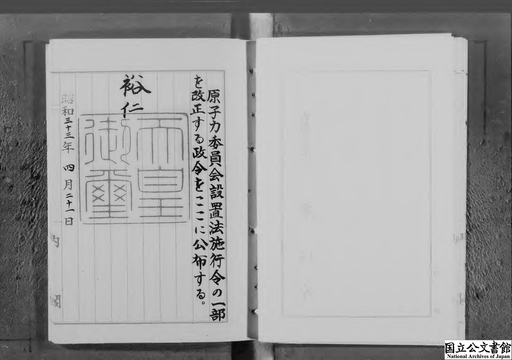 原子力委員会設置法施行令の一部
を改正する政令をここに公布する。
裕仁
天皇
御璽
昭和三十三年 四月二十一日
内閣
国立公文書館
National Archives of Japan